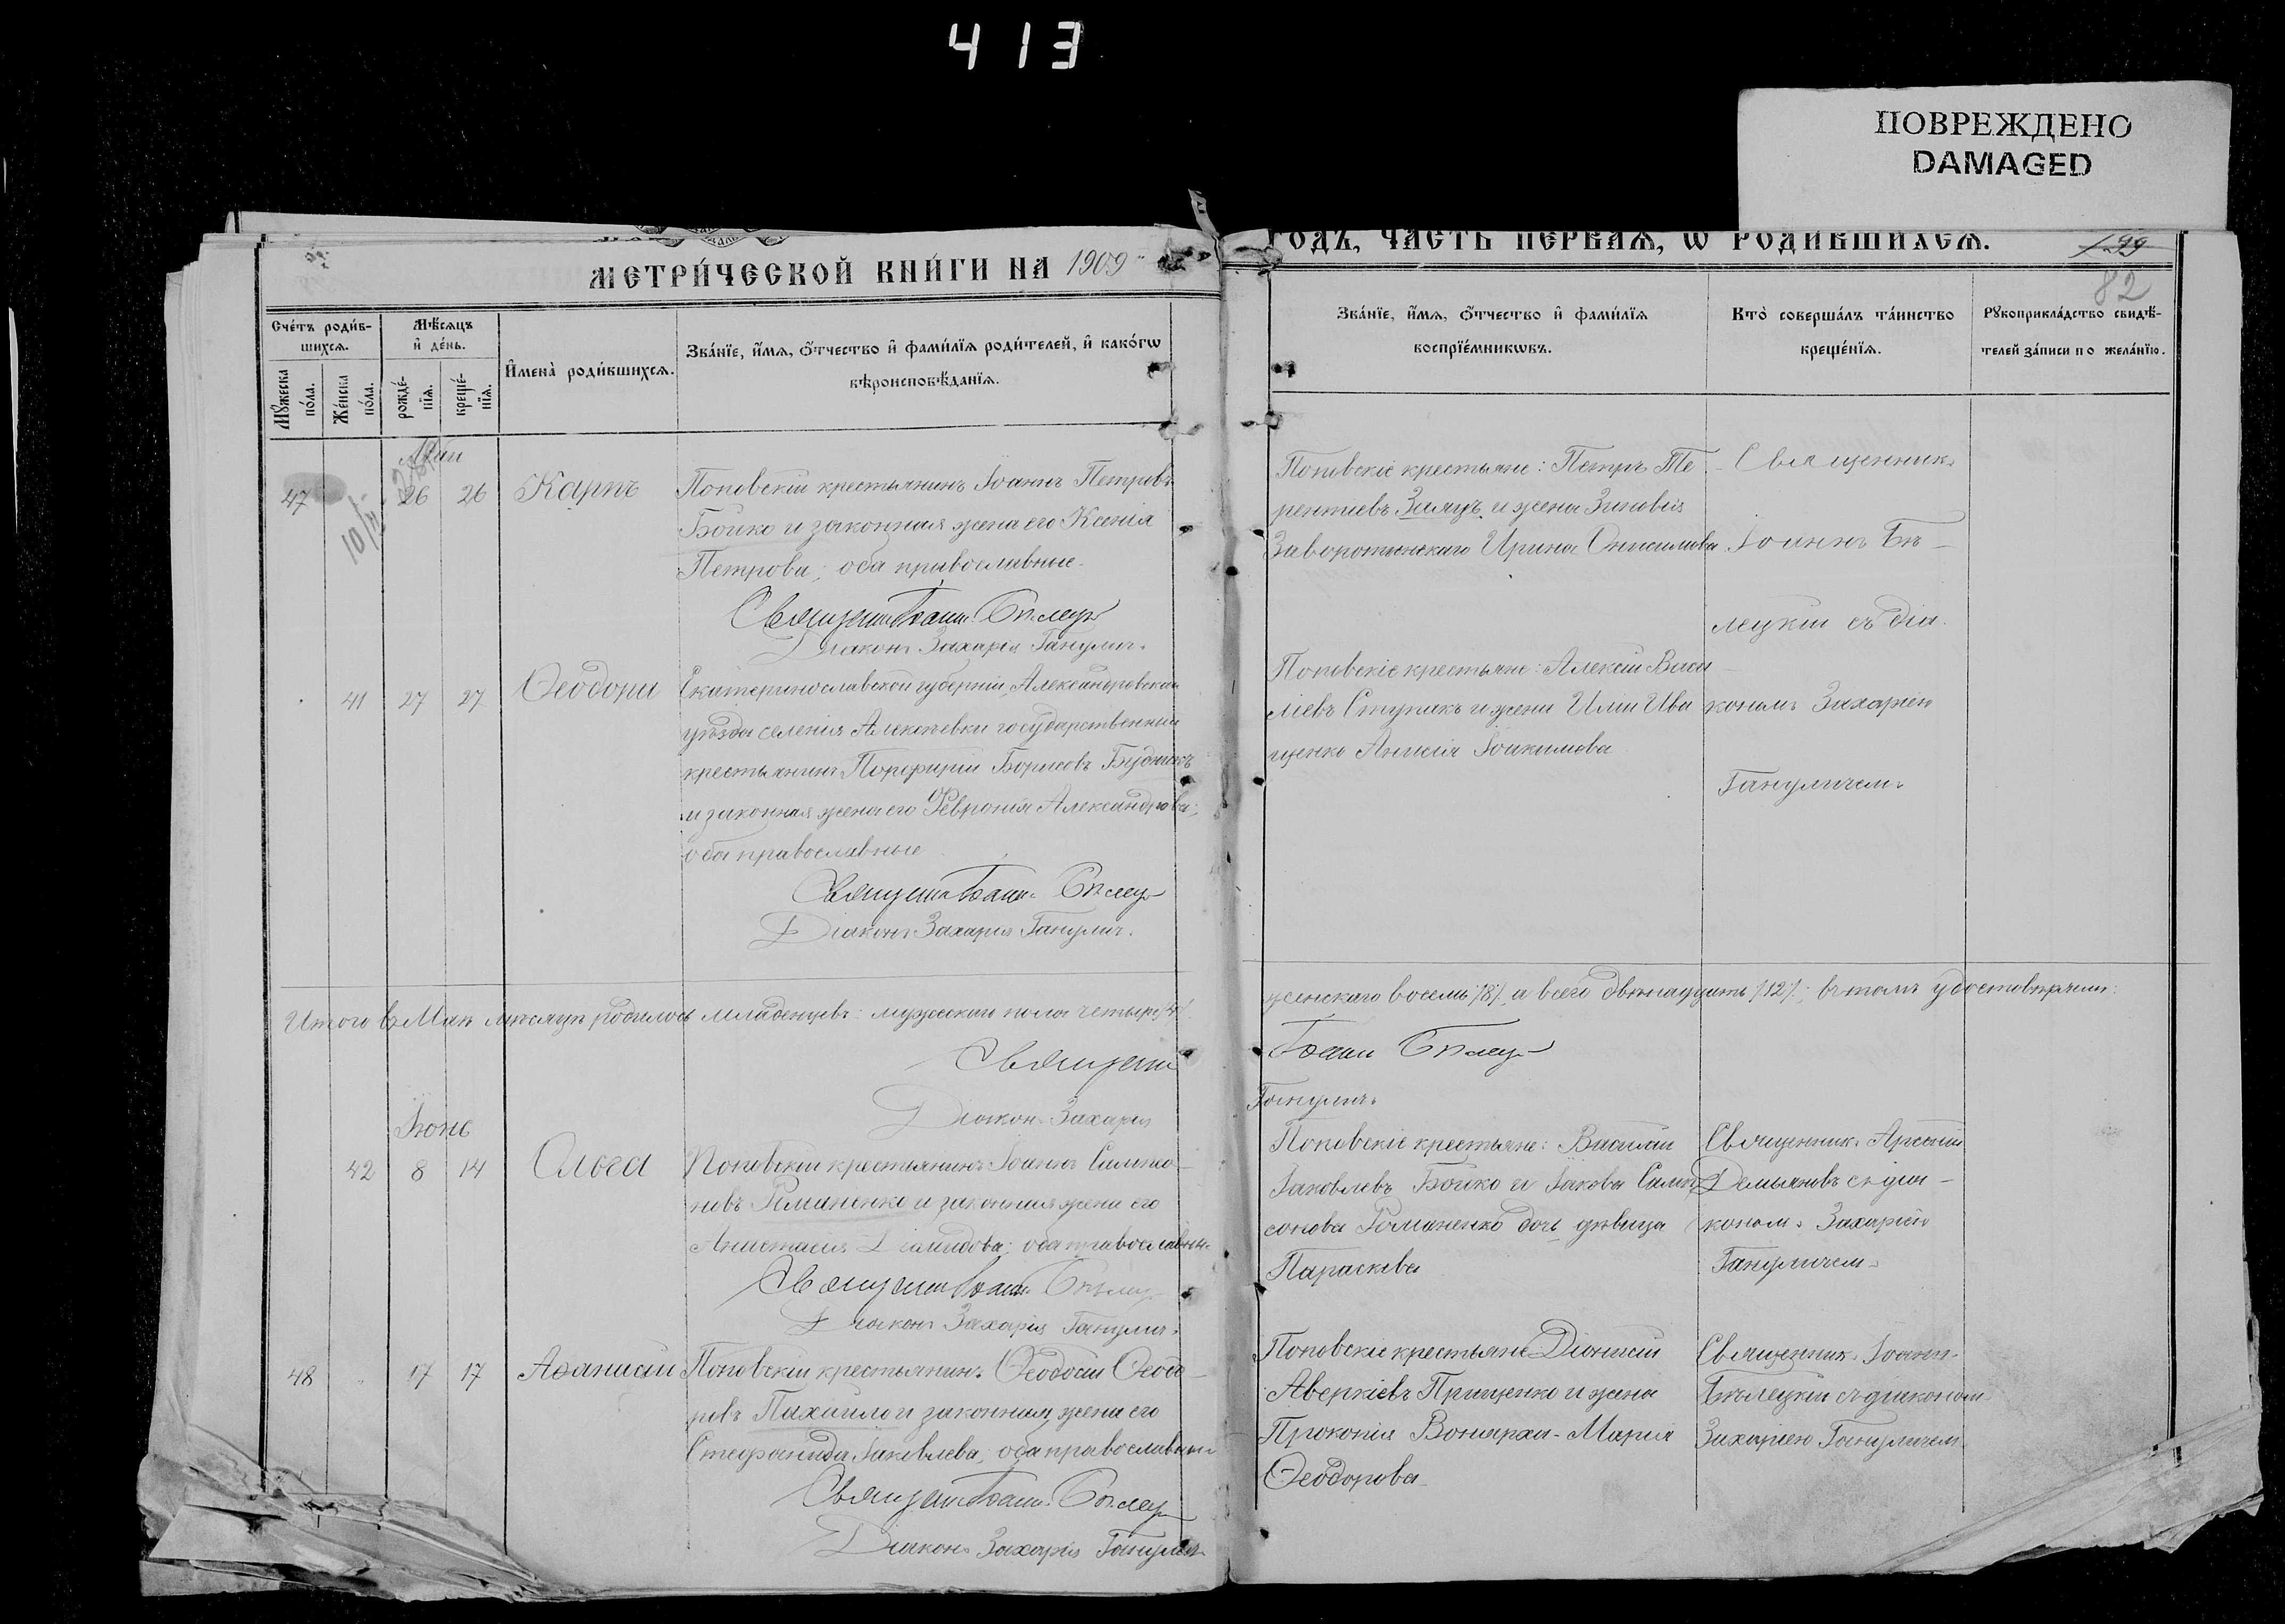 413
ПОВРЕЖДЕНО
DAMAGED
МЕТРИ́ЧЕСКОЙ КНИ́ГИ НА 1909
ГОДЪ, ЧАСТЬ ПЕРВАѦ, Ѡ РОДИ́ВШИХСѦ.
199
82
Сче́тъ роди́в-
шихсѧ.
Мꙋжеска
по́ла.
Же́нска
по́ла.
Мѣ́сѧцъ
и҆ де́нь.
рожде́-
нїѧ.
креще́-
нїѧ.
И҆мена̀ роди́вшихсѧ.
Зва́нїе, и҆́мѧ, ѻ҆́тчество и҆ фами́лїѧ роди́телей, и҆ како́гѡ
вѣроисповѣ́данїѧ.
Зва́нїе, и҆́мѧ, ѻ҆́тчество и҆ фами́лїѧ
воспрїе́мникѡвъ.
Кто̀ соверша́лъ та́инство
креще́нїѧ.
Рꙋкоприкла́дство свидѣ́-
телей за́писи по жела́нїю.
Май
47 26 26 Карпъ
Поповскій крестьянинъ Іоаннъ Петровъ
Бойко и законная жена его Ксенія
Петрова; оба православные.
Діаконъ Захарія Ганулич.
Поповскіе крестьяне: Петръ Те-
рентіевъ Заяцъ и жена Зиновія
Заворотынскаго Ирина Онисимова
Священникъ
Іоаннъ Бѣ-
лецкій съ діа-
кономъ Захаріею
Гануличемъ
41 27 27 Ѳеодора
Екатеринославской губерніи, Александровскаго
уѣзда селенія Алексѣевки государственный
крестьянинъ Порфирій Борисовъ Будникъ
и законная жена его Февронія Александрова;
оба православные
Діаконъ Захарія Ганулич.
Поповскіе крестьяне: Алексій Васи-
ліевъ Ступакъ и жена Иліи Ива
щенко Анисія Іоакимова
Итого въ Маѣ мѣсяцѣ родилось младенцевъ: мужескаго пола четыре /4/
женскаго восемь /8/, а всего двѣнадцать /12/; въ томъ удостовѣряемъ:
Діаконъ Захарія
Ганулич.
Іюнь
42 8 14 Ольга
Поповскій крестьянинъ Іоаннъ Сампсо-
новъ Романенко и законная жена его
Анастасія Діамидова; оба православны.
Діаконъ Захарія Ганулич.
Поповскіе крестьяне: Василій
Іаковлевъ Бойко и Іакова Самп-
сонова Романенко дочь дѣвица
Параскева
Священник Арсеній
Демьяновъ съ діа-
коном Захаріею
Гануличем
48 17 17 Аѳанасій
Поповскій крестьянинъ Ѳеодосій Ѳеодо-
ровъ Пахайло и законная жена его
Стефанида Іаковлева; оба православны
Діаконъ Захарія Ганулич
Поповскіе крестьяне Діонисій
Аверкіевъ Прищенко и жена
Прокопія Вонярха - Марія
Ѳеодорова
Священник Іоаннъ
Бѣлецкій съ діаконом
Захаріею Гануличем